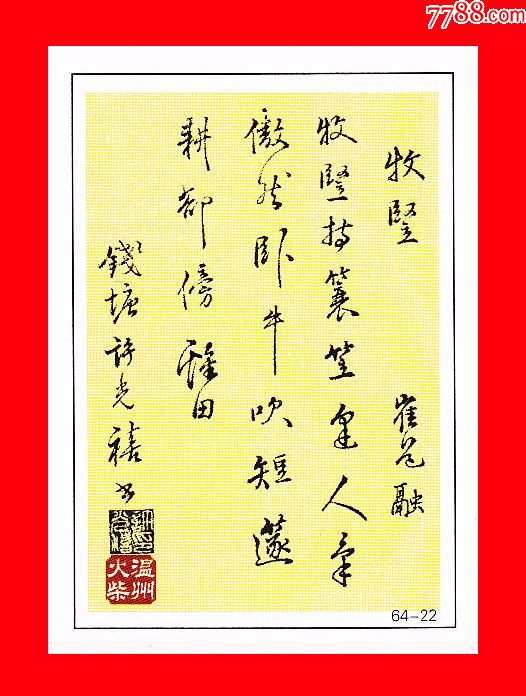 7788.com
牧豎 崔道融
牧豎持蓑笠逢人氣
傲然卧牛吹短篴
耕却傍谿田
錢塘許光禧書
温州火柴
64-22